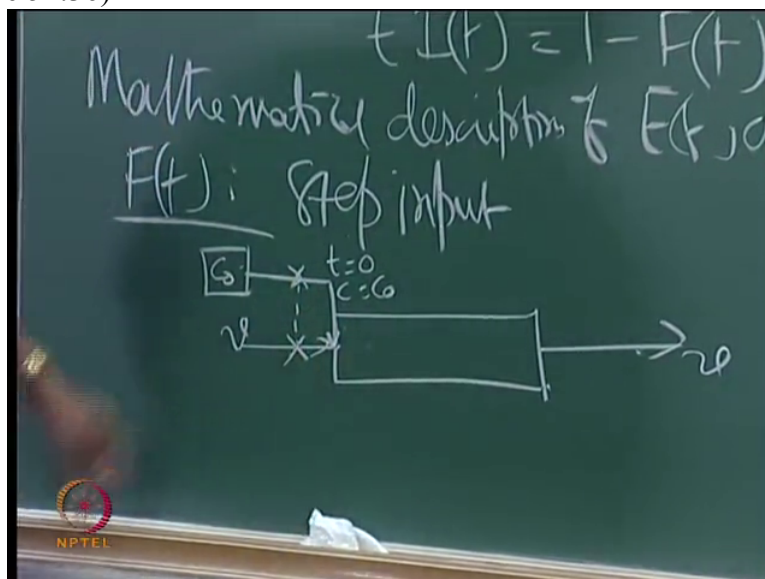 t I(t) = 1 - F(t)
Mathematical description of E(t),
F(t): Step input
C₀
t=0
C=C₀
v
v
NPTEL